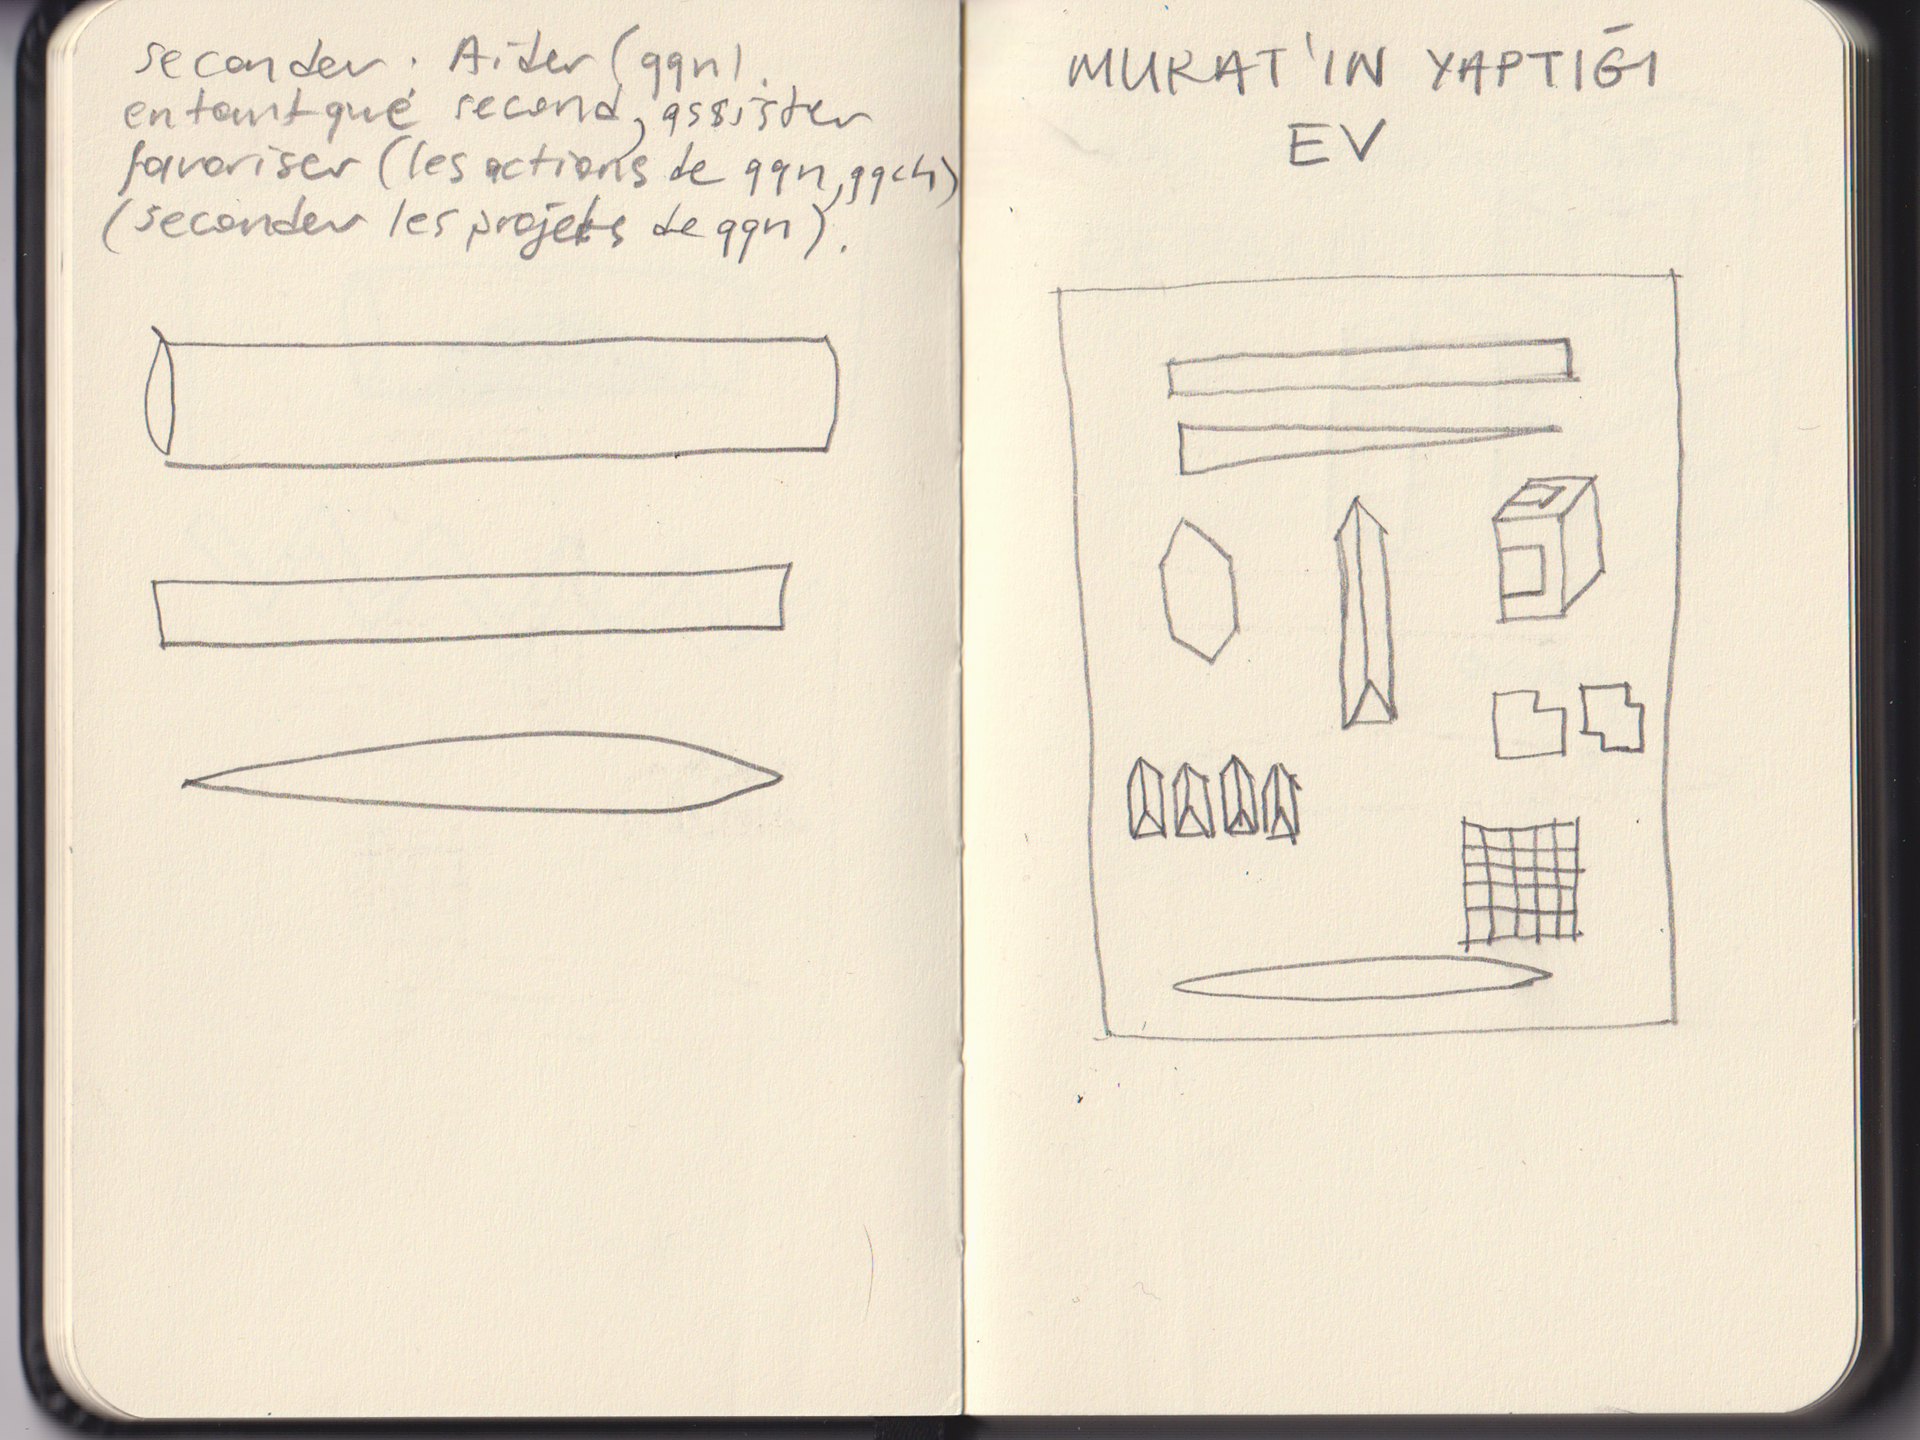 seconder. Aider (qqn).
en tant que second, assister
favoriser (les actions de qqn, qqch)
(seconder les projets de qqn).
MURAT'IN YAPTIĞI
EV